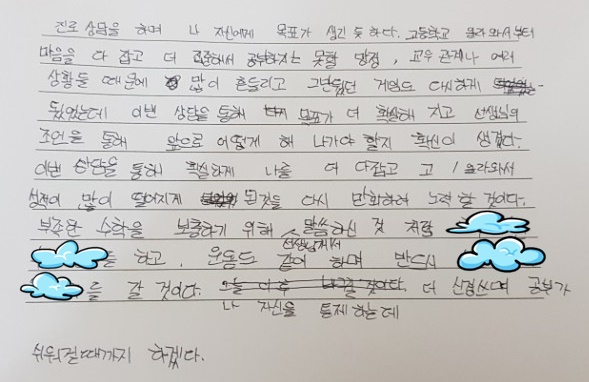 진로 상담을 하며 나 자신에게 목표가 생긴 듯 하다. 고등학교 올라와서부터
마음을 다 잡고 더 집중해서 공부하지는 못할 망정, 교우 관계나 여러
상황들 때문에 많이 흔들리고 그만뒀던 게임도 다시하게
됬었는데 이번 상담을 통해 목표가 더 확실해 지고 선생님의
조언을 통해 앞으로 어떻게 해 나가야 할지 확신이 생겼다.
이번 상담을 통해 확실하게 나를 더 다잡고 고1 올라와서
성적이 많이 떨어지게 된것을 다시 만회하여 노력 할 것이다.
부족한 수학을 보충하기 위해 선생님께서 말씀하신 것 처럼
를 하고, 운동도 같이 하며 반드시
를 갈 것이다. 나 자신을 통제 하는데 더 신경쓰며 공부가
쉬워질때까지 하겠다.